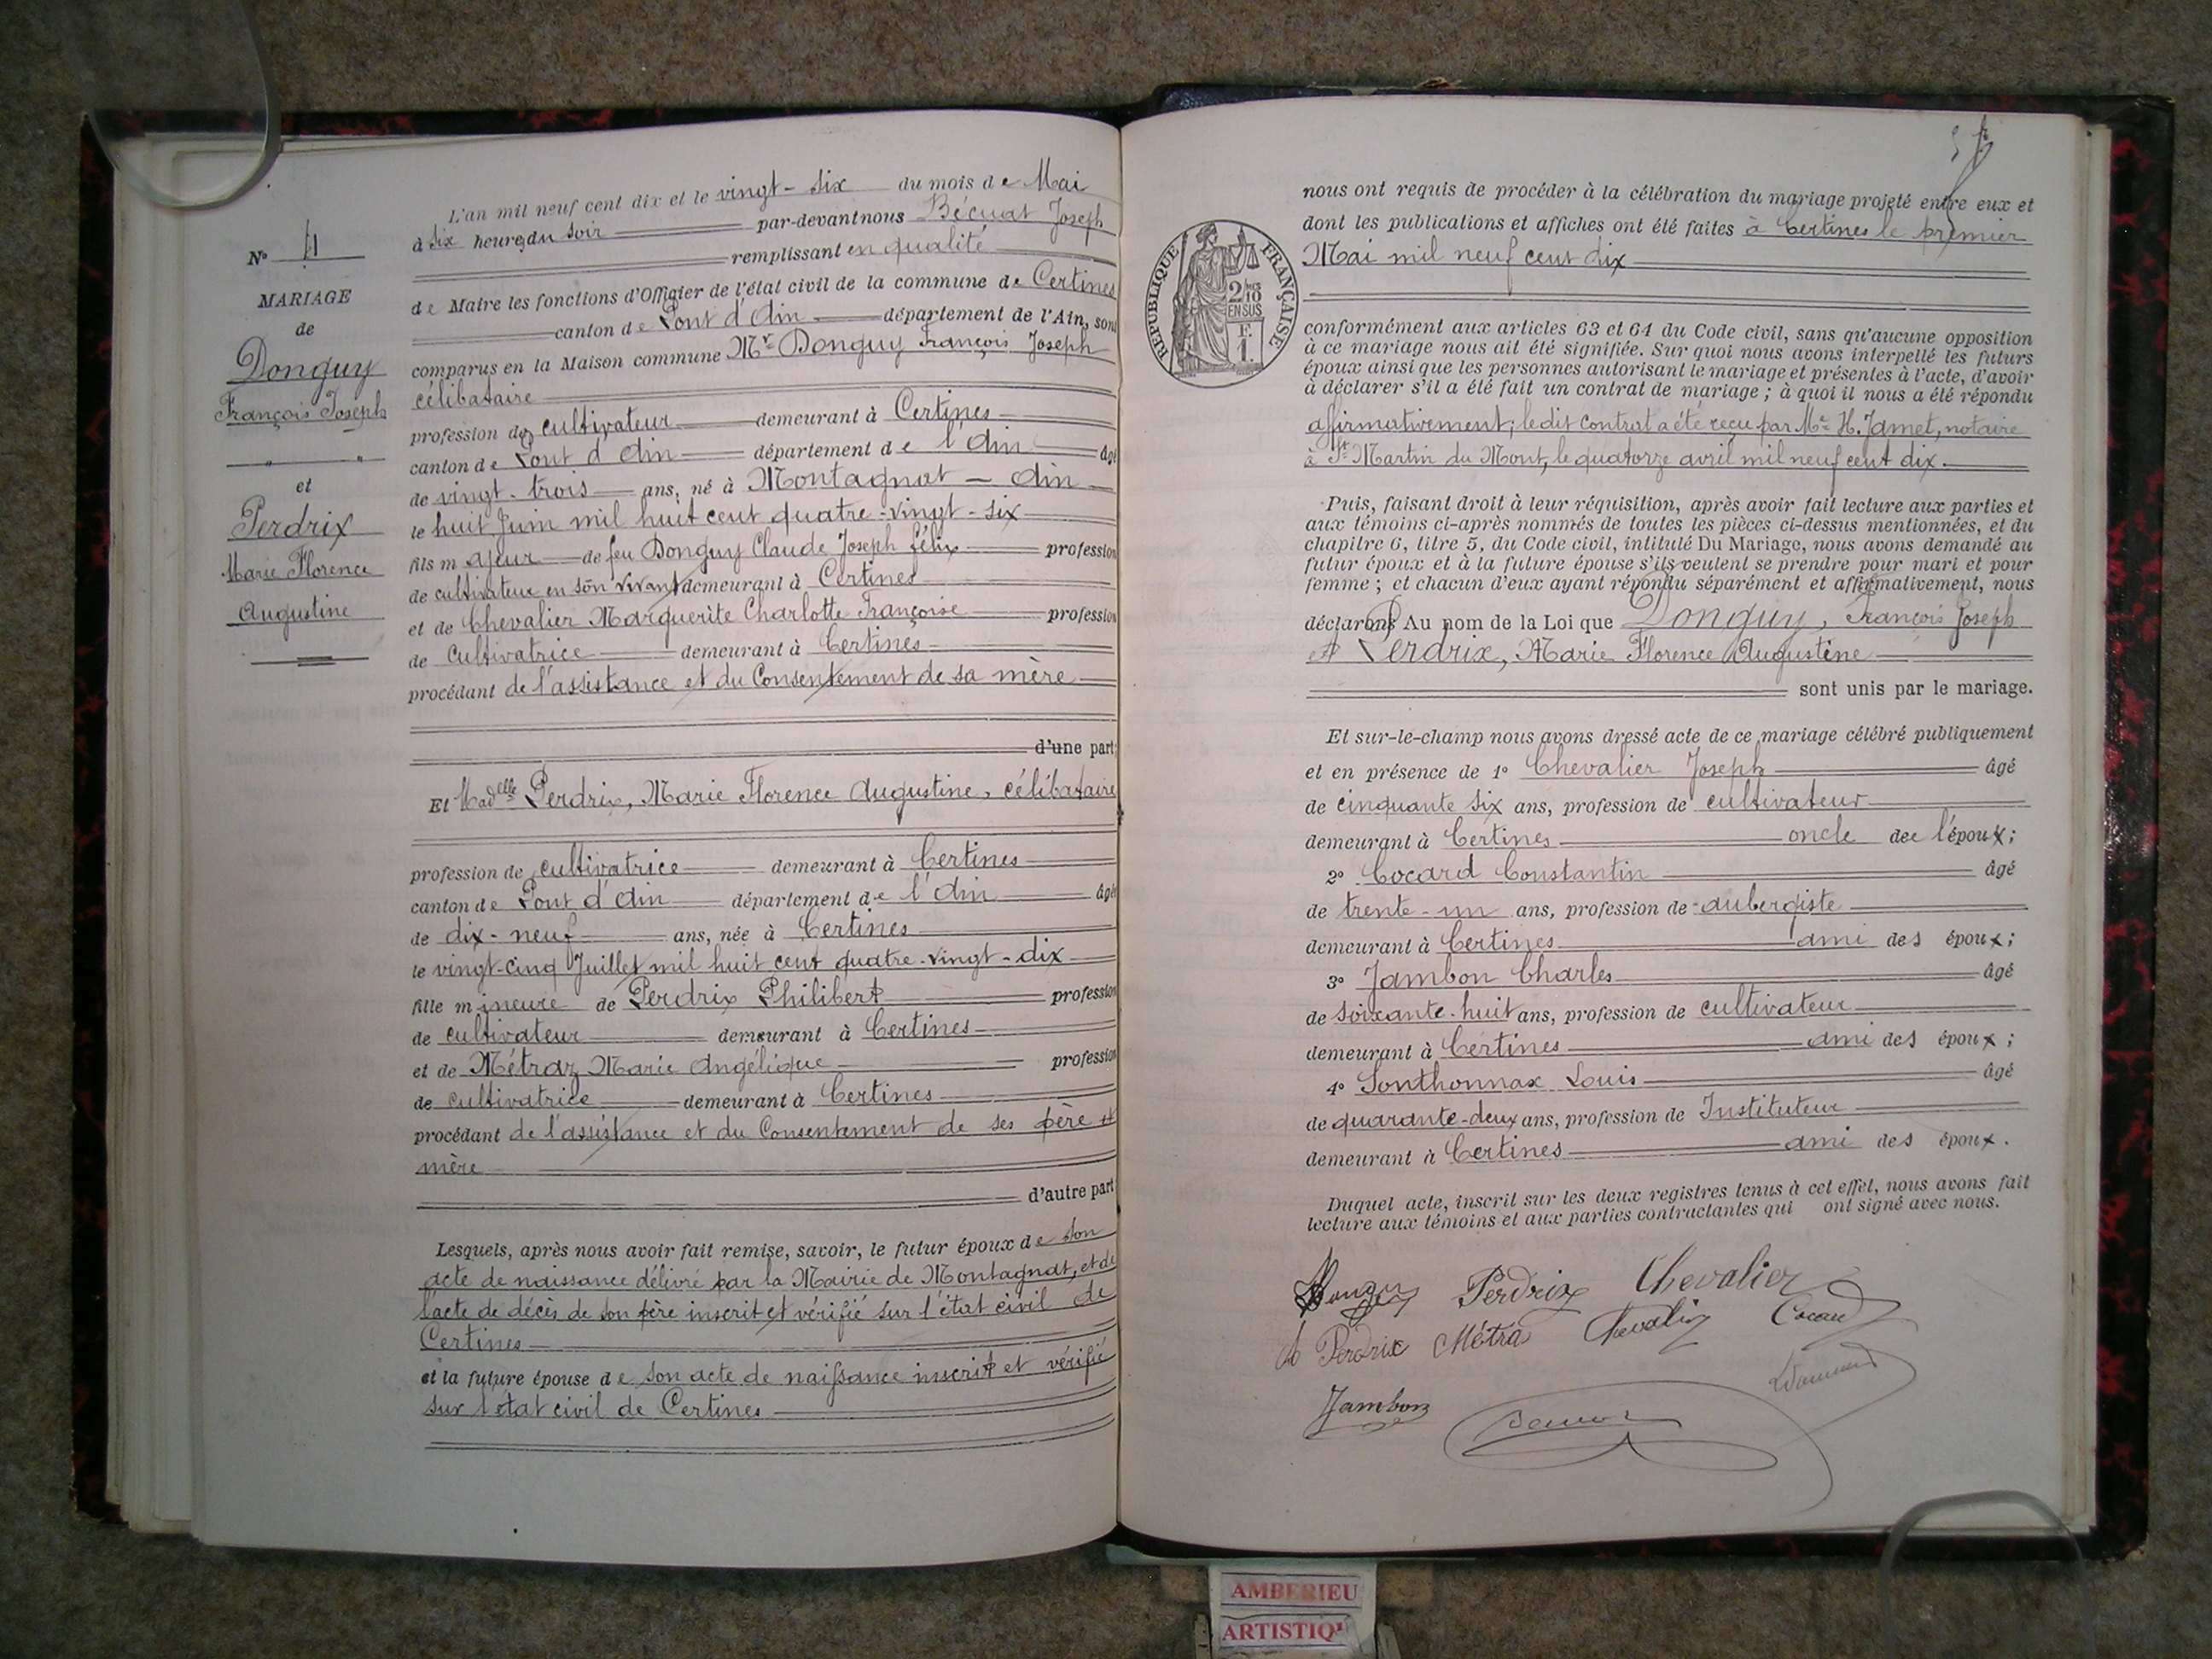 N° 4
MARIAGE
de
Donguy
François Joseph
et
Perdrix
Marie Florence
Augustine
L'an mil neuf cent dix et le vingt-six du mois de Mai
à six heures du soir par-devant nous Bécuat Joseph
remplissant en qualité
de Maire les fonctions d'Officier de l'état civil de la commune de Certines
canton de Pont d'Ain département de l'Ain, sont
comparus en la Maison commune Mr Donguy François Joseph
célibataire
profession de cultivateur demeurant à Certines
canton de Pont d'Ain département de l'Ain âgé
de vingt-trois ans, né à Montagnat - Ain
le huit Juin mil huit cent quatre-vingt-six
fils majeur de feu Donguy Claude Joseph Félix profession
de cultivateur en son vivant demeurant à Certines
et de Chevalier Marguerite Charlotte Françoise profession
de Cultivatrice demeurant à Certines
procédant de l'assistance et du Consentement de sa mère
d'une part;
Et Madelle Perdrix, Marie Florence Augustine, célibataire
profession de cultivatrice demeurant à Certines
canton de Pont d'Ain département de l'Ain âgée
de dix-neuf ans, née à Certines
le vingt-cinq Juillet mil huit cent quatre-vingt-dix
fille mineure de Perdrix Philibert profession
de cultivateur demeurant à Certines
et de Métraz Marie Angélique profession
de cultivatrice demeurant à Certines
procédant de l'assistance et du Consentement de ses père et
mère
d'autre part
Lesquels, après nous avoir fait remise, savoir, le futur époux de son
acte de naissance délivré par la Mairie de Montagnat, et de
l'acte de décès de son père inscrit et vérifié sur l'état civil de
Certines
et la future épouse de son acte de naissance inscrit et vérifié
sur l'état civil de Certines
nous ont requis de procéder à la célébration du mariage projeté entre eux et
dont les publications et affiches ont été faites à Certines le premier
Mai mil neuf cent dix
RÉPUBLIQUE FRANÇAISE
2/10
EN SUS
F.
1.
conformément aux articles 63 et 64 du Code civil, sans qu'aucune opposition
à ce mariage nous ait été signifiée. Sur quoi nous avons interpellé les futurs
époux ainsi que les personnes autorisant le mariage et présentes à l'acte, d'avoir
à déclarer s'il a été fait un contrat de mariage ; à quoi il nous a été répondu
affirmativement; le dit contrat a été reçu par Me H. Jamet, notaire
à St Martin du Mont, le quatorze avril mil neuf cent dix.
Puis, faisant droit à leur réquisition, après avoir fait lecture aux parties et
aux témoins ci-après nommés de toutes les pièces ci-dessus mentionnées, et du
chapitre 6, titre 5, du Code civil, intitulé Du Mariage, nous avons demandé au
futur époux et à la future épouse s'ils veulent se prendre pour mari et pour
femme ; et chacun d'eux ayant répondu séparément et affirmativement, nous
déclarons Au nom de la Loi que Donguy, François Joseph
et Perdrix, Marie Florence Augustine
sont unis par le mariage.
Et sur-le-champ nous avons dressé acte de ce mariage célébré publiquement
et en présence de 1° Chevalier Joseph âgé
de cinquante six ans, profession de cultivateur
demeurant à Certines oncle de l'époux;
2° Cocard Constantin âgé
de trente-un ans, profession de aubergiste
demeurant à Certines ami des époux;
3° Jambon Charles âgé
de soixante-huit ans, profession de cultivateur
demeurant à Certines ami des époux ;
4° Sonthonnax Louis âgé
de quarante-deux ans, profession de Instituteur
demeurant à Certines ami des époux.
Duquel acte, inscrit sur les deux registres tenus à cet effet, nous avons fait
lecture aux témoins et aux parties contractantes qui ont signé avec nous.
Donguy Perdrix Chevalier
Perdrix Métra Chevalier Cocard
Jambon
AMBERIEU
ARTISTIQ